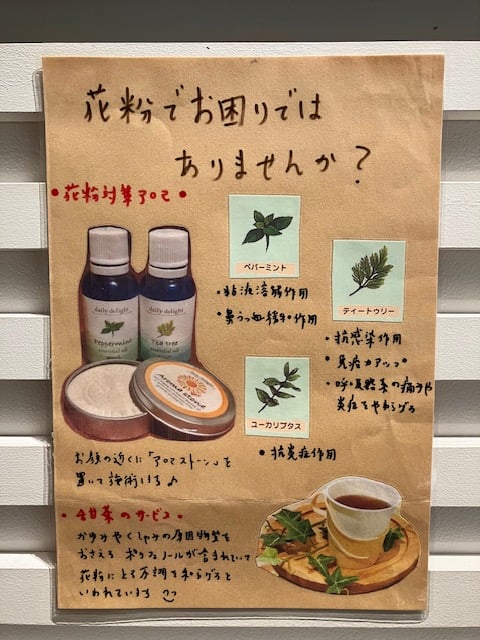 花粉でお困りでは
ありませんか?
・花粉対策アロマ・
ペパーミント
・粘液溶解作用
・鼻うっ血緩和作用
ティートゥリー
・抗感染作用
・免疫力アップ
・呼吸器系の痛みや
炎症をやわらげる
ユーカリプタス
・抗炎症作用
daily delight
Peppermint
essential oil
daily delight
Tea tree
essential oil
Aroma stone
お顔の近くに「アロマストーン」を
置いて施術します♪
・甜茶のサービス・
かゆみやくしゃみの原因物質を
おさえる ポリフェノールが含まれていて
花粉による不調を和らげると
いわれています